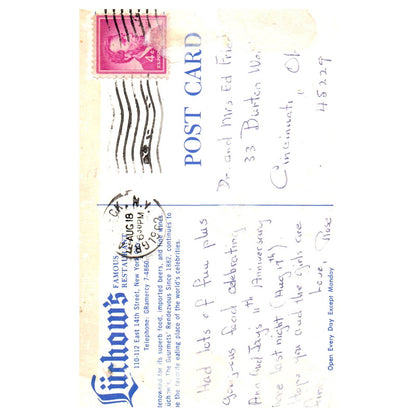 Lüchow's
FAMOUS
RESTAURANT
110-112 East 14th Street, New York
Telephone: GRamercy 7-4860
renowned for its superb food, imported beers, and
The Gourmets' Rendezvous Since 1882, continues to
be the favorite eating place of the world's celebrities.
AUG 18
6 PM
1962
Had lots of fun plus
food celebrating
Ann and Jay's 11th Anniversary
here last night (Aug 17th).
Hope you and the girls are
Love, Rose
Open Every Day Except Monday
POST CARD
4¢
Dr. and Mrs Ed Fried
33 Burton Wo
Cincinnati, O
45229